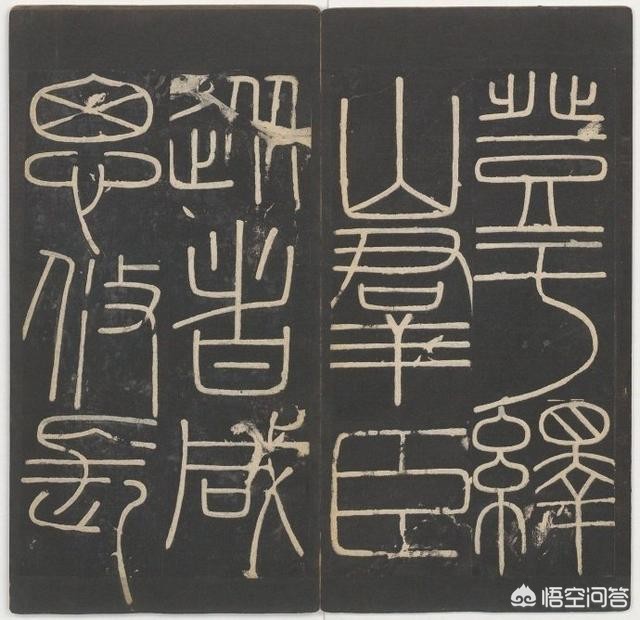 登于繹
山羣臣
從者咸
思攸長
悟空问答